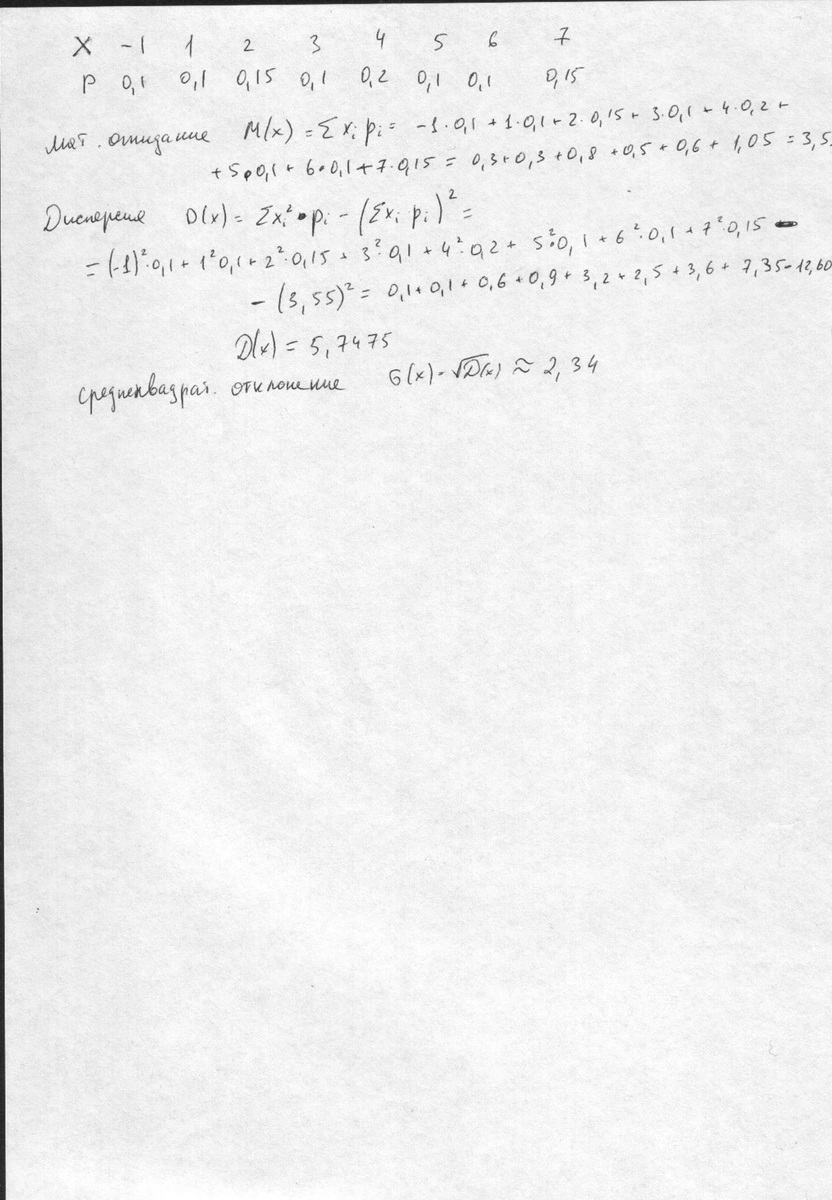 X -1 1 2 3 4 5 6 7
P 0,1 0,1 0,15 0,1 0,2 0,1 0,1 0,15
Мат. ожидание M(x) = Σ xi pi = -1·0,1 + 1·0,1 + 2·0,15 + 3·0,1 + 4·0,2 +
+ 5·0,1 + 6·0,1 + 7·0,15 = 0,3+0,3+0,8+0,5+0,6+1,05 = 3,5
Дисперсия D(x) = Σxi²·pi - (Σxi pi)² =
= (-1)²·0,1 + 1²0,1 + 2²·0,15 + 3²·0,1 + 4²·0,2 + 5²·0,1 + 6²·0,1 + 7²·0,15 -
- (3,55)² = 0,1+0,1+0,6+0,9+3,2+2,5+3,6+7,35-12,60
D(x) = 5,7475
Среднеквадрат. отклонение G(x) = √D(x) ≈ 2,34